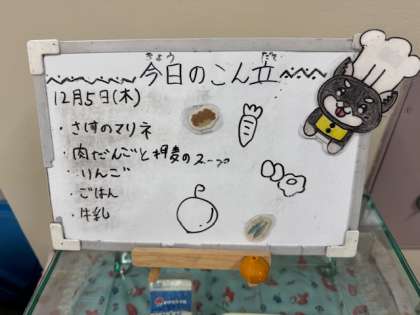 きょう だて
今日のこん立
12月5日(木)
・さけのマリネ
・肉だんごと押麦のスープ
・りんご
・ごはん
・牛乳